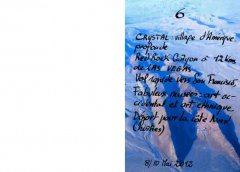 6
CRYSTAL : village d'Amérique
profonde
Red Rock Canyon à 12 km
de LAS VEGAS
Vol rapide vers San Francisco
Fabuleux musées : art oc-
cidental et art ethnique
Départ pour la côte Nord
8/10 Mai 2012